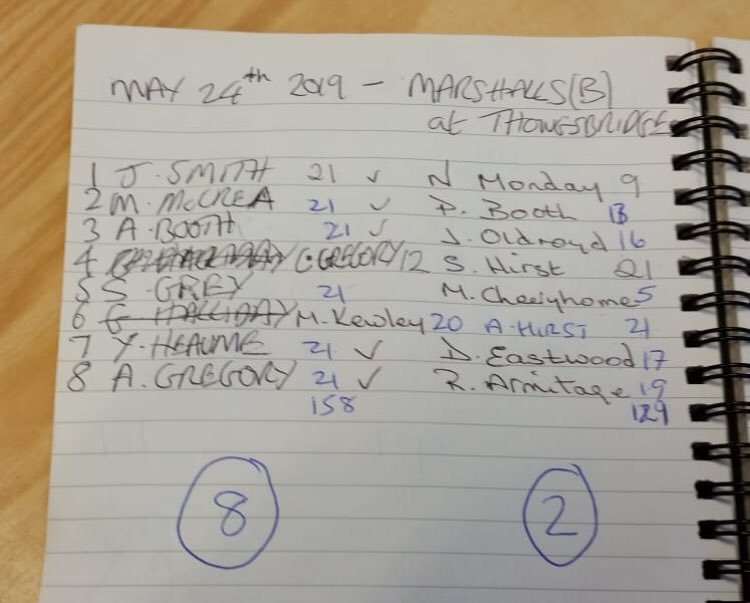 MAY 24th 2019 - MARSHALLS(B)
at THONGSBRIDGE
1 J. SMITH 21 ✓ N Monday 9
2 M. McCREA 21 ✓ P. Booth 13
3 A. BOOTH 21 ✓ J. Oldroyd 16
4 C. GREGORY 12 S. Hirst 21
5 S. GREY 21 M. Cheslyhome 5
6 G HALLIDAY M. Kewley 20 A. HIRST 21
7 Y. HEAUME 21 ✓ D. Eastwood 17
8 A. GREGORY 21 ✓ R. Armitage 19
158 129
8 2